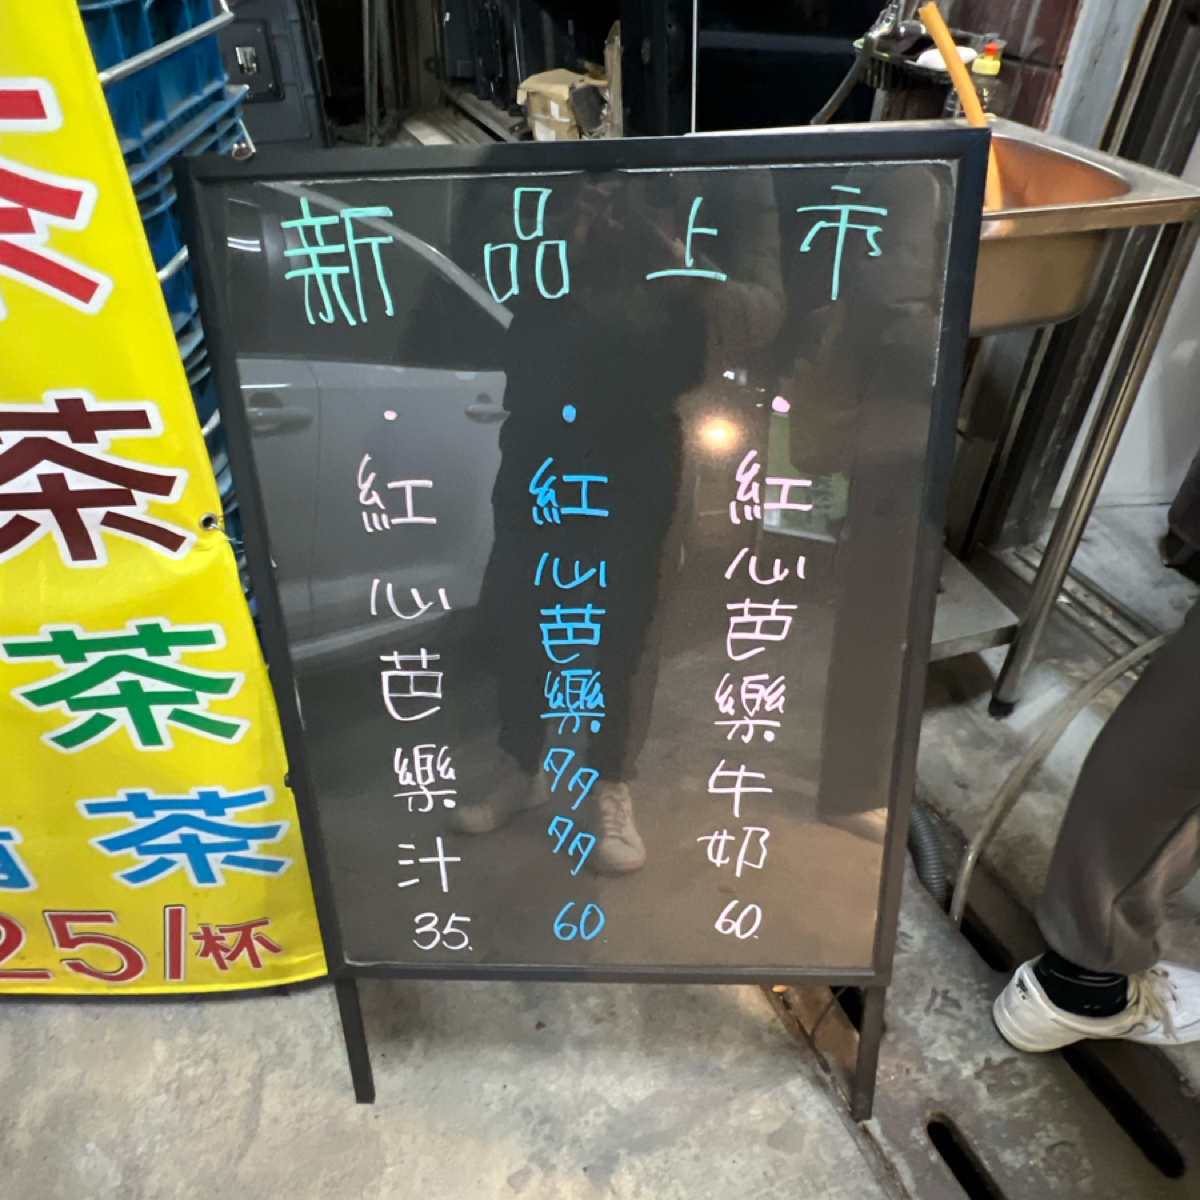 新品上市
·紅心芭樂汁 35.
·紅心芭樂多多 60.
·紅心芭樂牛奶 60.
茶
茶
茶
茶
25/杯